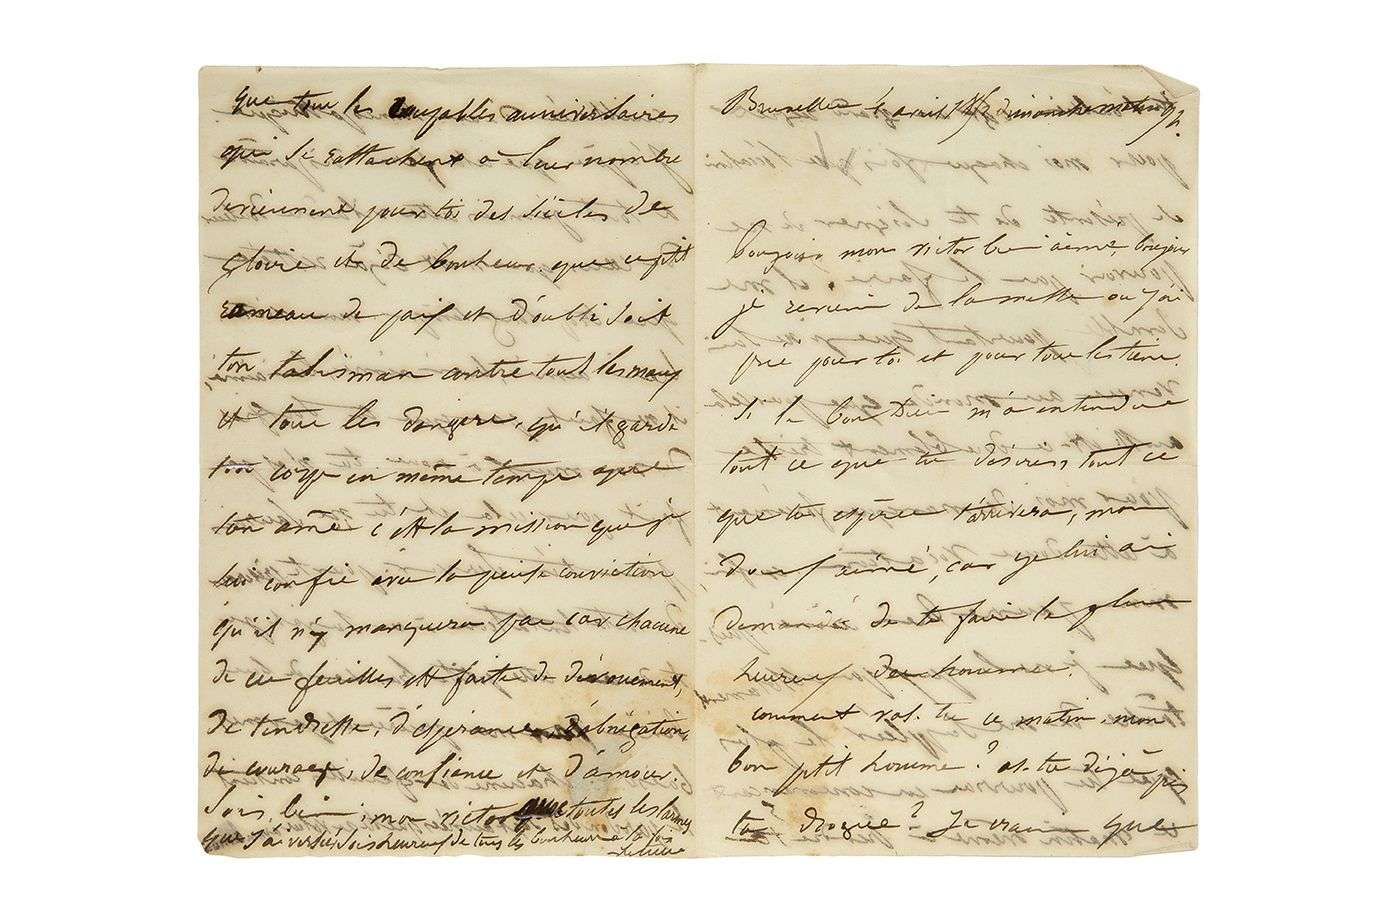 Bruxelles 4 avril 1852 dimanche matin 9h.
bonjour, mon victor bien aimé, bonjour
je reviens de la messe ou j'ai
prié pour toi et pour tous les tiens.
Si le bon Dieu m'a entendue
tout ce que tu désires, tout ce
que tu espères t'arrivera, mon
doux aimé, car je lui ai
demandé de te faire le plus
heureux des hommes.
comment vas-tu ce matin, mon
bon ptit homme? as-tu déjà pris
ta drogue? Je crains que
que tous les coupables anniversaires
qui se rattachent à leur nombre
deviennent pour toi des siècles de
gloire et de bonheur, que ce ptit
rameau de paix et d'oubli soit
ton talisman contre tous les maux
et tous les dangers, qu'il garde
ton corps en même temps que
ton âme c'est la mission que j'ai
lui confie avec la pieuse conviction
qu'il n'y manquera pas car chacune
de ces feuilles est faite de dévouement,
de tendresse, d'espérance, d'abnégation,
de courage, de confiance et d'amour.
Sois béni, mon victor que toutes les larmes
que j'ai versées, sois heureux de tous les bonheurs à la fois
Juliette